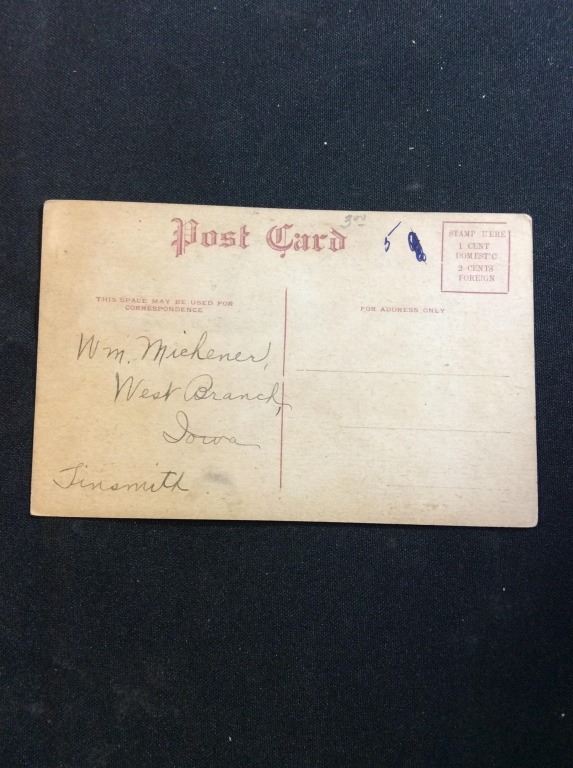 3.00
Post Card
5
STAMP HERE
1 CENT
DOMESTIC
2 CENTS
FOREIGN
THIS SPACE MAY BE USED FOR
CORRESPONDENCE
FOR ADDRESS ONLY
Wm. Michener,
West Branch,
Iowa
Tinsmith